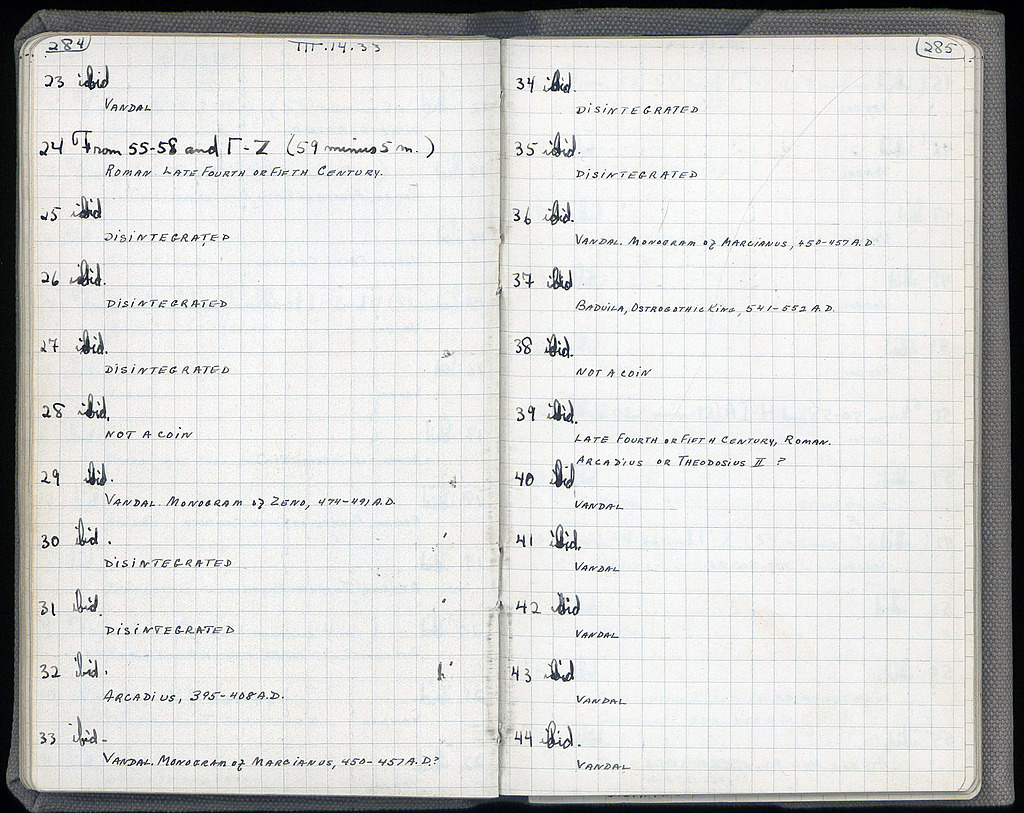 284
III.14.38
23 ibid
VANDAL
24 From 55-58 and Γ-Z (59 minus 5 m.)
ROMAN. LATE FOURTH OR FIFTH CENTURY.
25 ibid
DISINTEGRATED
26 ibid.
DISINTEGRATED
27 ibid.
DISINTEGRATED
28 ibid.
NOT A COIN
29 ibid.
VANDAL. MONOGRAM of ZENO, 474-491 A.D.
30 ibid.
DISINTEGRATED
31 ibid.
DISINTEGRATED
32 ibid.
ARCADIUS, 395-408 A.D.
33 ibid-
VANDAL. MONOGRAM of MARCIANUS, 450-457 A.D.?
285
34 ibid.
DISINTEGRATED
35 ibid.
DISINTEGRATED
36 ibid.
VANDAL. MONOGRAM of MARCIANUS, 450-457 A.D.
37 ibid
BADUILA, OSTROGOTHIC KING, 541-552 A.D.
38 ibid.
NOT A COIN
39 ibid.
LATE FOURTH OR FIFTH CENTURY, ROMAN.
ARCADIUS OR THEODOSIUS II ?
40 ibid
VANDAL
41 ibid.
VANDAL
42 ibid
VANDAL
43 ibid
VANDAL
44 ibid.
VANDAL